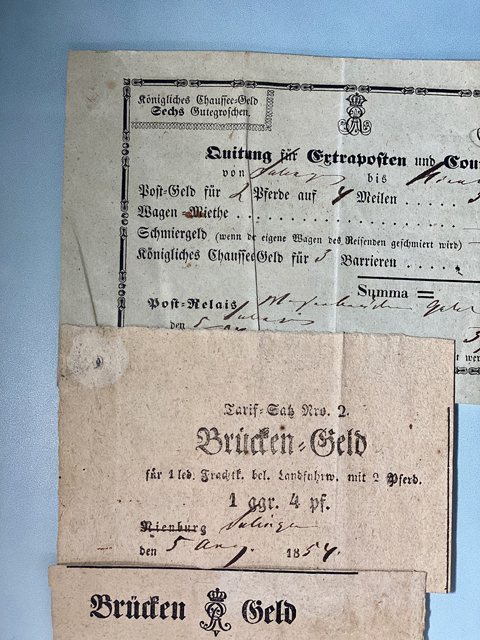 Königliches Chaussee-Geld
Sechs Gutegroschen.
Quitung für Extraposten und Cou
von bis
Post-Geld für 2 Pferde auf 4 Meilen . . . . .
Wagen-Miethe . . . . . . . . . . . . . . . .
Schmiergeld (wenn der eigene Wagen des Reisenden geschmiert wird)
Königliches ChausseeGeld für 3 Barrieren . . . . .
Summa =
Post-Relais
den 5
Tarif-Satz Nro. 2.
Brücken-Geld
für 1 led. Frachtk. bel. Landfuhrw. mit 2 Pferd.
1 ggr. 4 pf.
Nienburg
den 5 Aug. 1854.
Brücken Geld